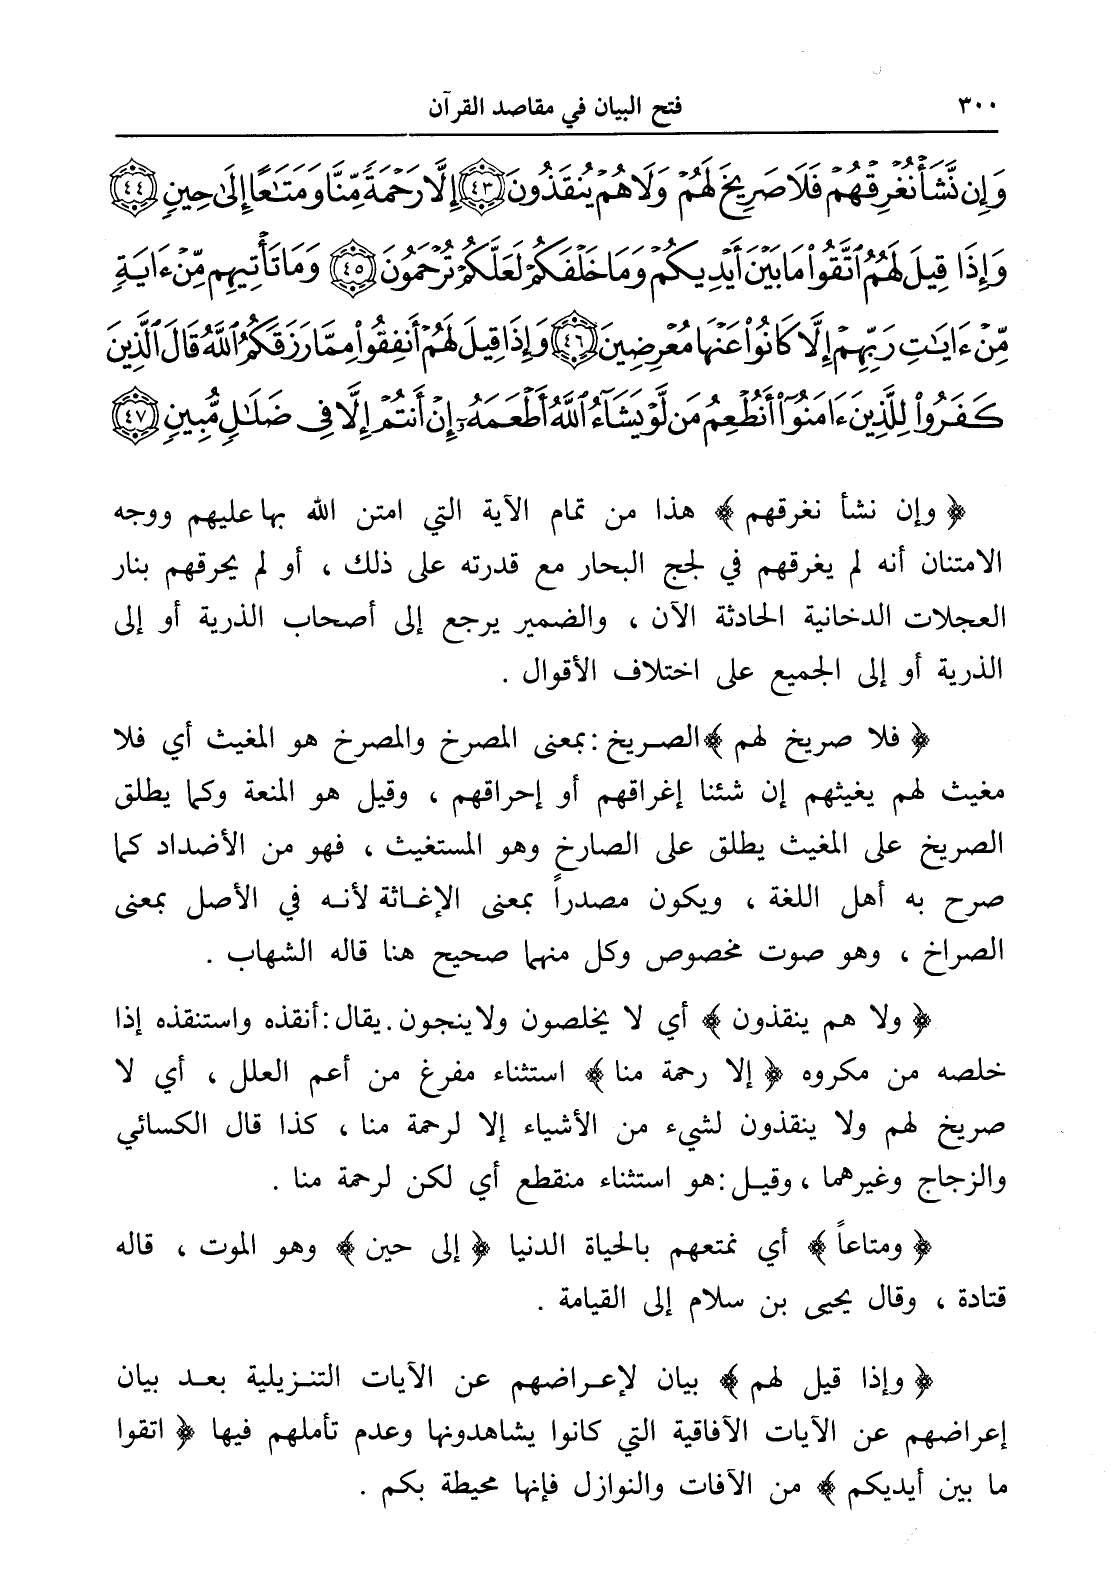 ٣٠٠ فتح البيان في مقاصد القرآن
وَإِن نَّشَأْ نُغْرِقْهُمْ فَلَا صَرِيخَ لَهُمْ وَلَا هُمْ يُنقَذُونَ ﴿٤٣﴾ إِلَّا رَحْمَةً مِّنَّا وَمَتَـٰعًا إِلَىٰ حِينٍ ﴿٤٤﴾
وَإِذَا قِيلَ لَهُمُ ٱتَّقُوا۟ مَا بَيْنَ أَيْدِيكُمْ وَمَا خَلْفَكُمْ لَعَلَّكُمْ تُرْحَمُونَ ﴿٤٥﴾ وَمَا تَأْتِيهِم مِّنْ ءَايَةٍ
مِّنْ ءَايَـٰتِ رَبِّهِمْ إِلَّا كَانُوا۟ عَنْهَا مُعْرِضِينَ ﴿٤٦﴾ وَإِذَا قِيلَ لَهُمْ أَنفِقُوا۟ مِمَّا رَزَقَكُمُ ٱللَّهُ قَالَ ٱلَّذِينَ
كَفَرُوا۟ لِلَّذِينَ ءَامَنُوٓا۟ أَنُطْعِمُ مَن لَّوْ يَشَآءُ ٱللَّهُ أَطْعَمَهُۥٓ إِنْ أَنتُمْ إِلَّا فِى ضَلَـٰلٍ مُّبِينٍ ﴿٤٧﴾
﴿ وإن نشأ نغرقهم ﴾ هذا من تمام الآية التي امتن الله بها عليهم ووجه
الامتنان أنه لم يغرقهم في لجج البحار مع قدرته على ذلك ، أو لم يحرقهم بنار
العجلات الدخانية الحادثة الآن ، والضمير يرجع إلى أصحاب الذرية أو إلى
الذرية أو إلى الجميع على اختلاف الأقوال .
﴿ فلا صريخ لهم ﴾ الصريخ : بمعنى المصرخ والمصرخ هو المغيث أي فلا
مغيث لهم يغيثهم إن شئنا إغراقهم أو إحراقهم ، وقيل هو المنعة وكما يطلق
الصريخ على المغيث يطلق على الصارخ وهو المستغيث ، فهو من الأضداد كما
صرح به أهل اللغة ، ويكون مصدراً بمعنى الإغاثة لأنه في الأصل بمعنى
الصراخ ، وهو صوت مخصوص وكل منهما صحيح هنا قاله الشهاب .
﴿ ولا هم ينقذون ﴾ أي لا يخلصون ولا ينجون . يقال : أنقذه واستنقذه إذا
خلصه من مكروه ﴿ إلا رحمة منا ﴾ استثناء مفرغ من أعم العلل ، أي لا
صريخ لهم ولا ينقذون لشيء من الأشياء إلا لرحمة منا ، كذا قال الكسائي
والزجاج وغيرهما ، وقيل : هو استثناء منقطع أي لكن لرحمة منا .
﴿ ومتاعاً ﴾ أي نمتعهم بالحياة الدنيا ﴿ إلى حين ﴾ وهو الموت ، قاله
قتادة ، وقال يحيى بن سلام إلى القيامة .
﴿ وإذا قيل لهم ﴾ بيان لإعراضهم عن الآيات التنزيلية بعد بيان
إعراضهم عن الآيات الآفاقية التي كانوا يشاهدونها وعدم تأملهم فيها ﴿ اتقوا
ما بين أيديكم ﴾ من الآفات والنوازل فإنها محيطة بكم .